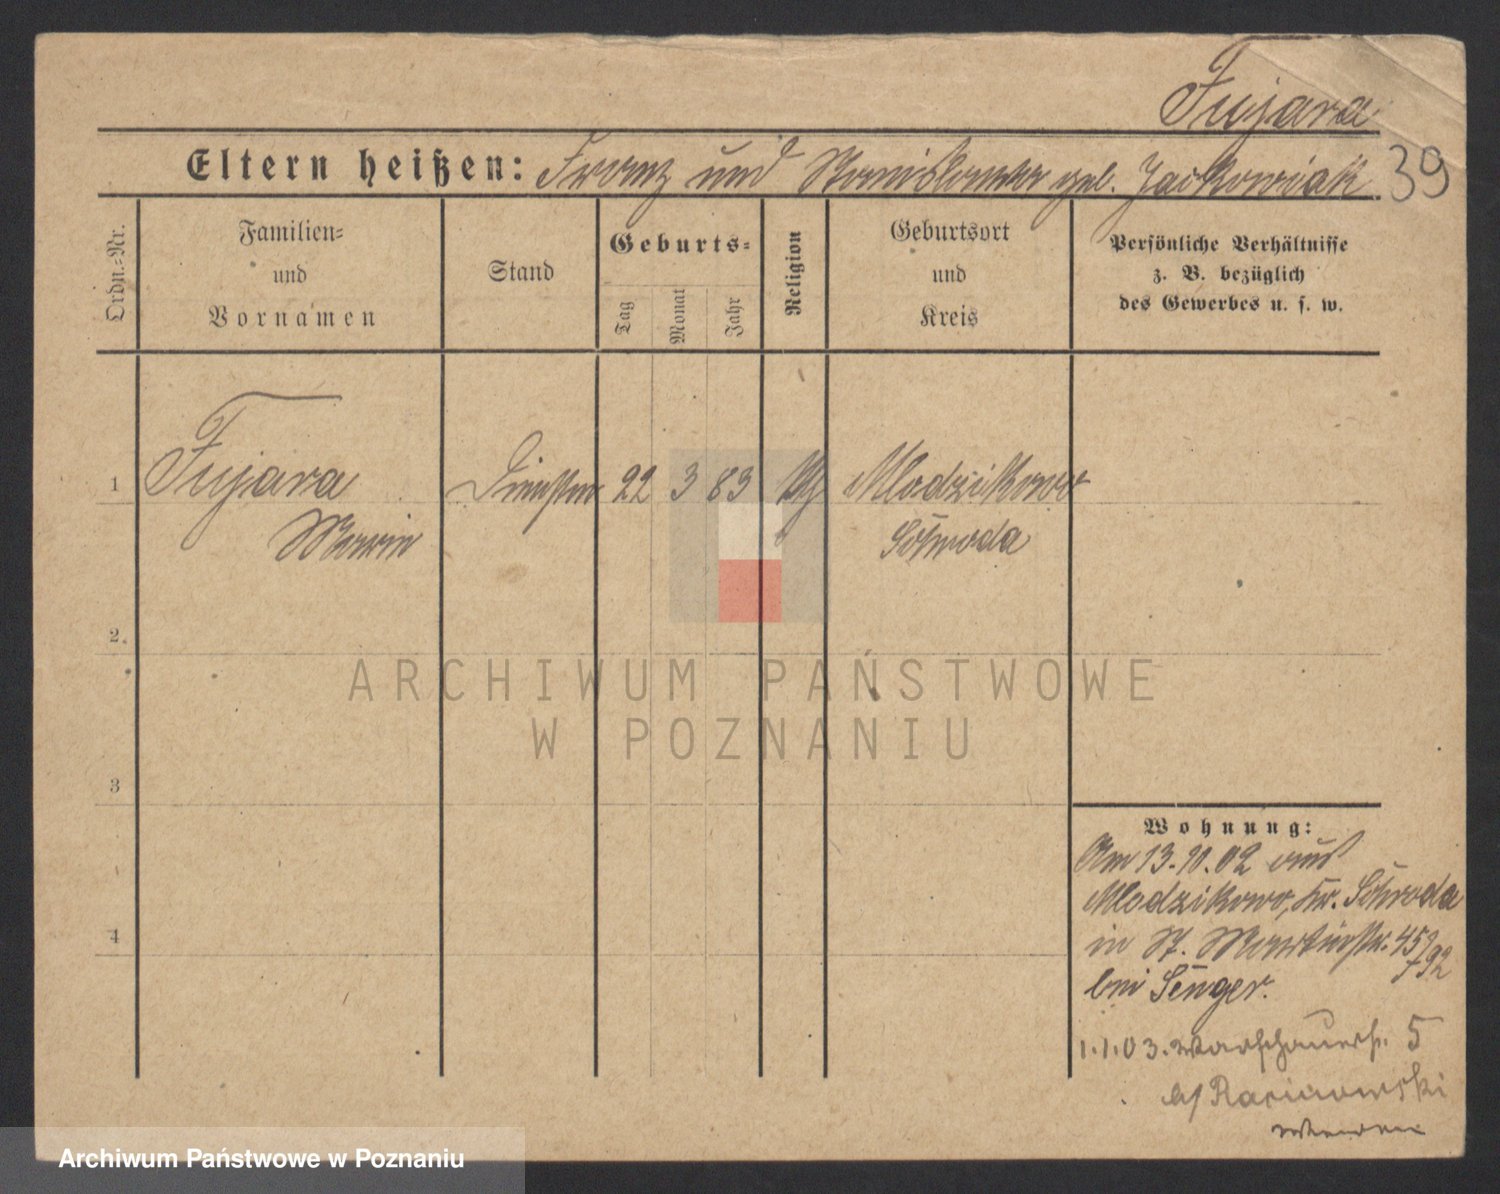 Fujara
Eltern heißen: Franz und Stanislawa geb. Jackowiak
39
Ordn.-Nr.
Familien- und Vornamen
Stand
Geburts-
Tag
Monat
Jahr
Religion
Geburtsort und Kreis
Persönliche Verhältnisse
z. B. bezüglich
des Gewerbes u. s. w.
1 Fujara 22 3 83 Mlodzikowo
Marie Schroda
2.
3
4
Wohnung:
Am 13.10.02 aus
Mlodzikowo, Kr. Schroda
in St. Martinstr. 45/792
bei Senger.
1.1.03. Warschauerstr. 5
b/
ARCHIWUM PAŃSTWOWE
W POZNANIU
Archiwum Państwowe w Poznaniu